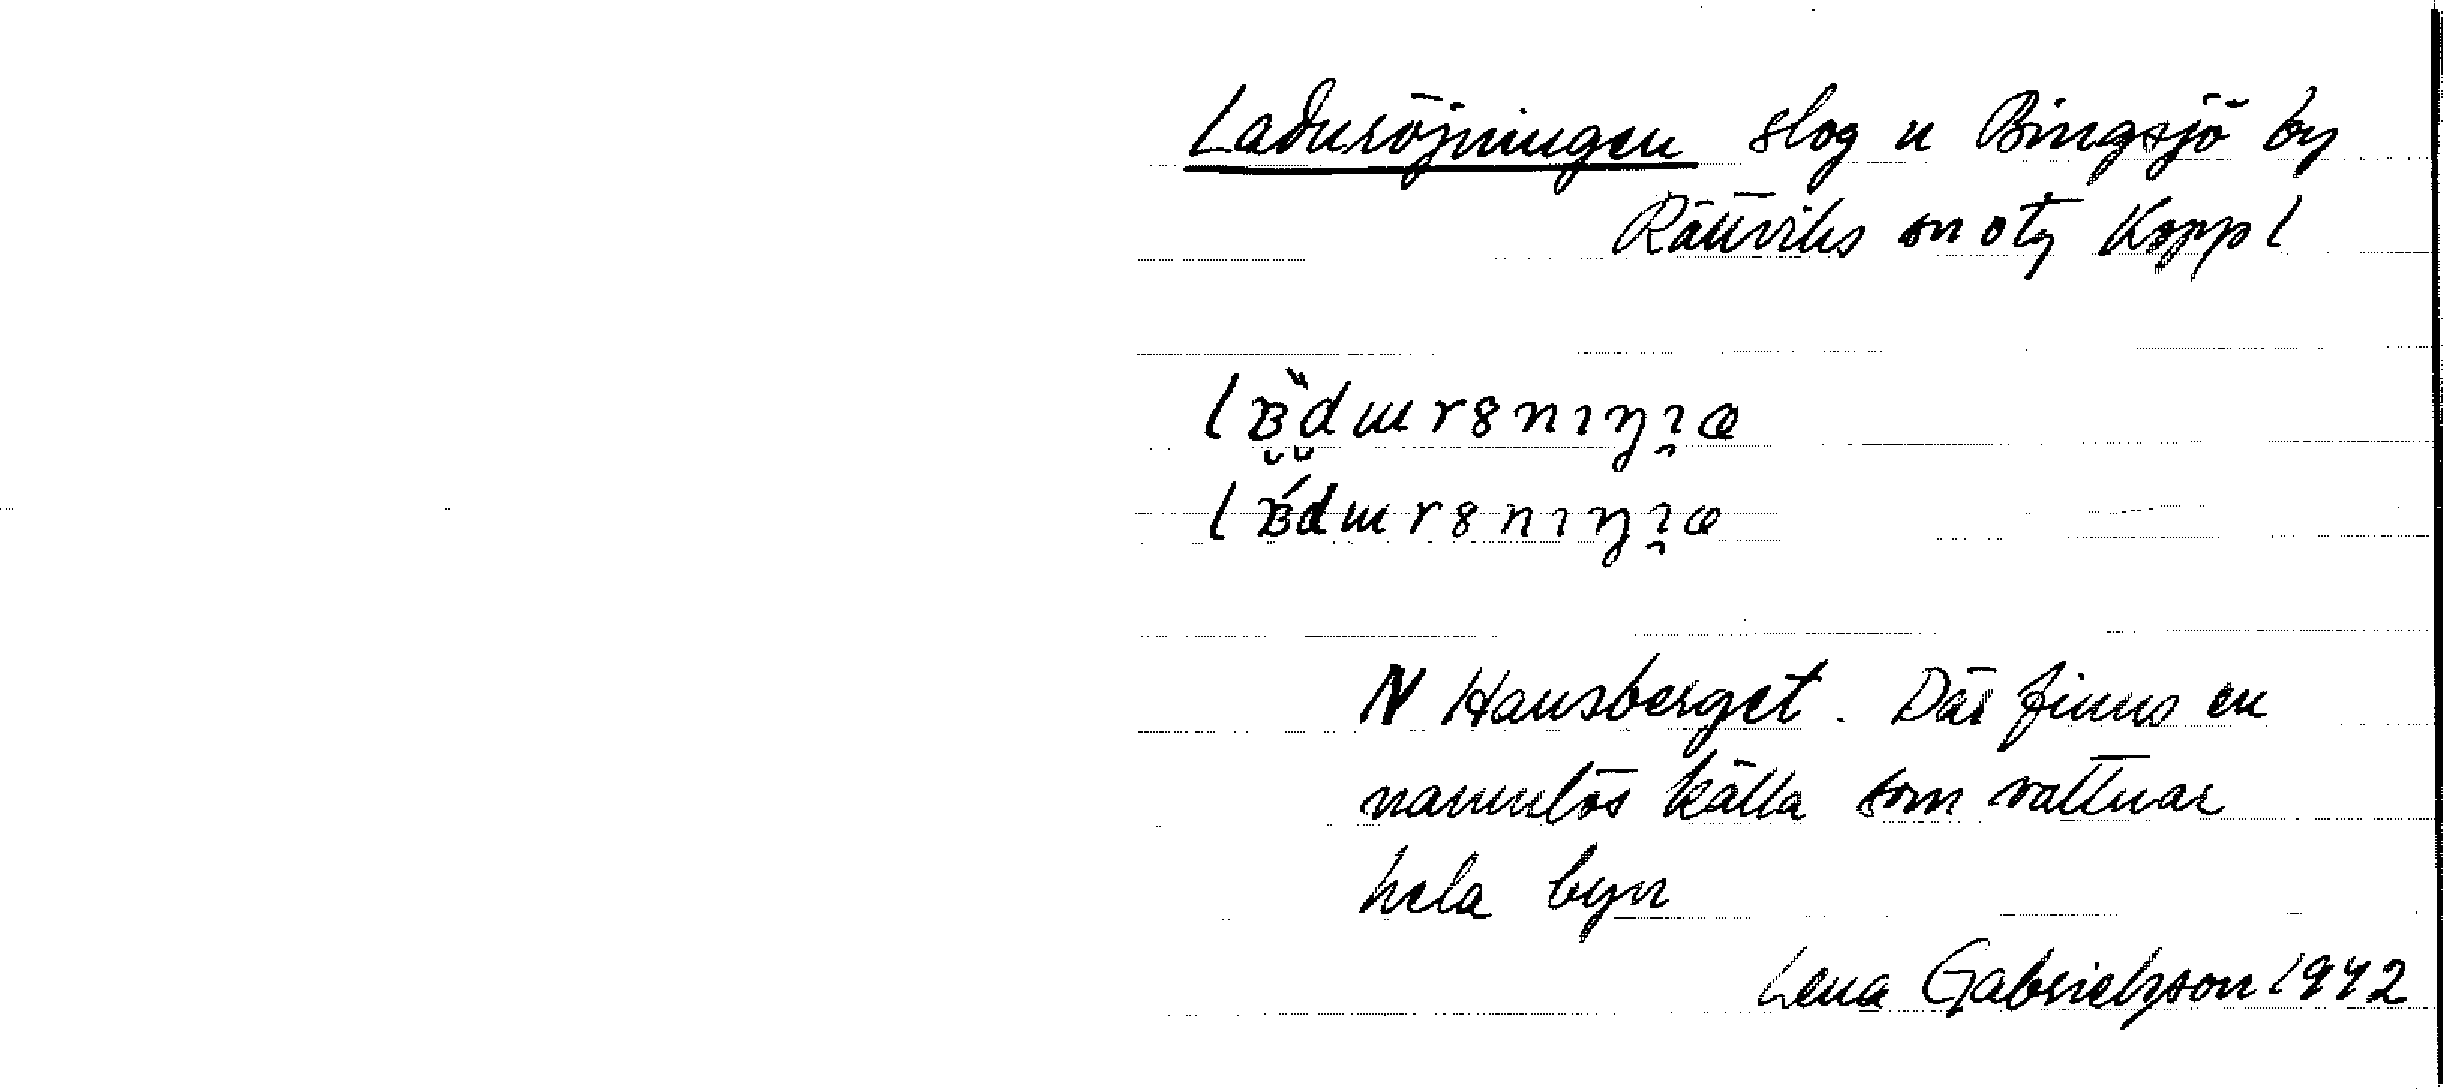 Laduröjningen slog n Bingsjö by
Rättviks sn o tg Koppl
N Hansberget. Där finns en
namnlös källa som vattnar
hela byn
Lena Gabrielsson 1942